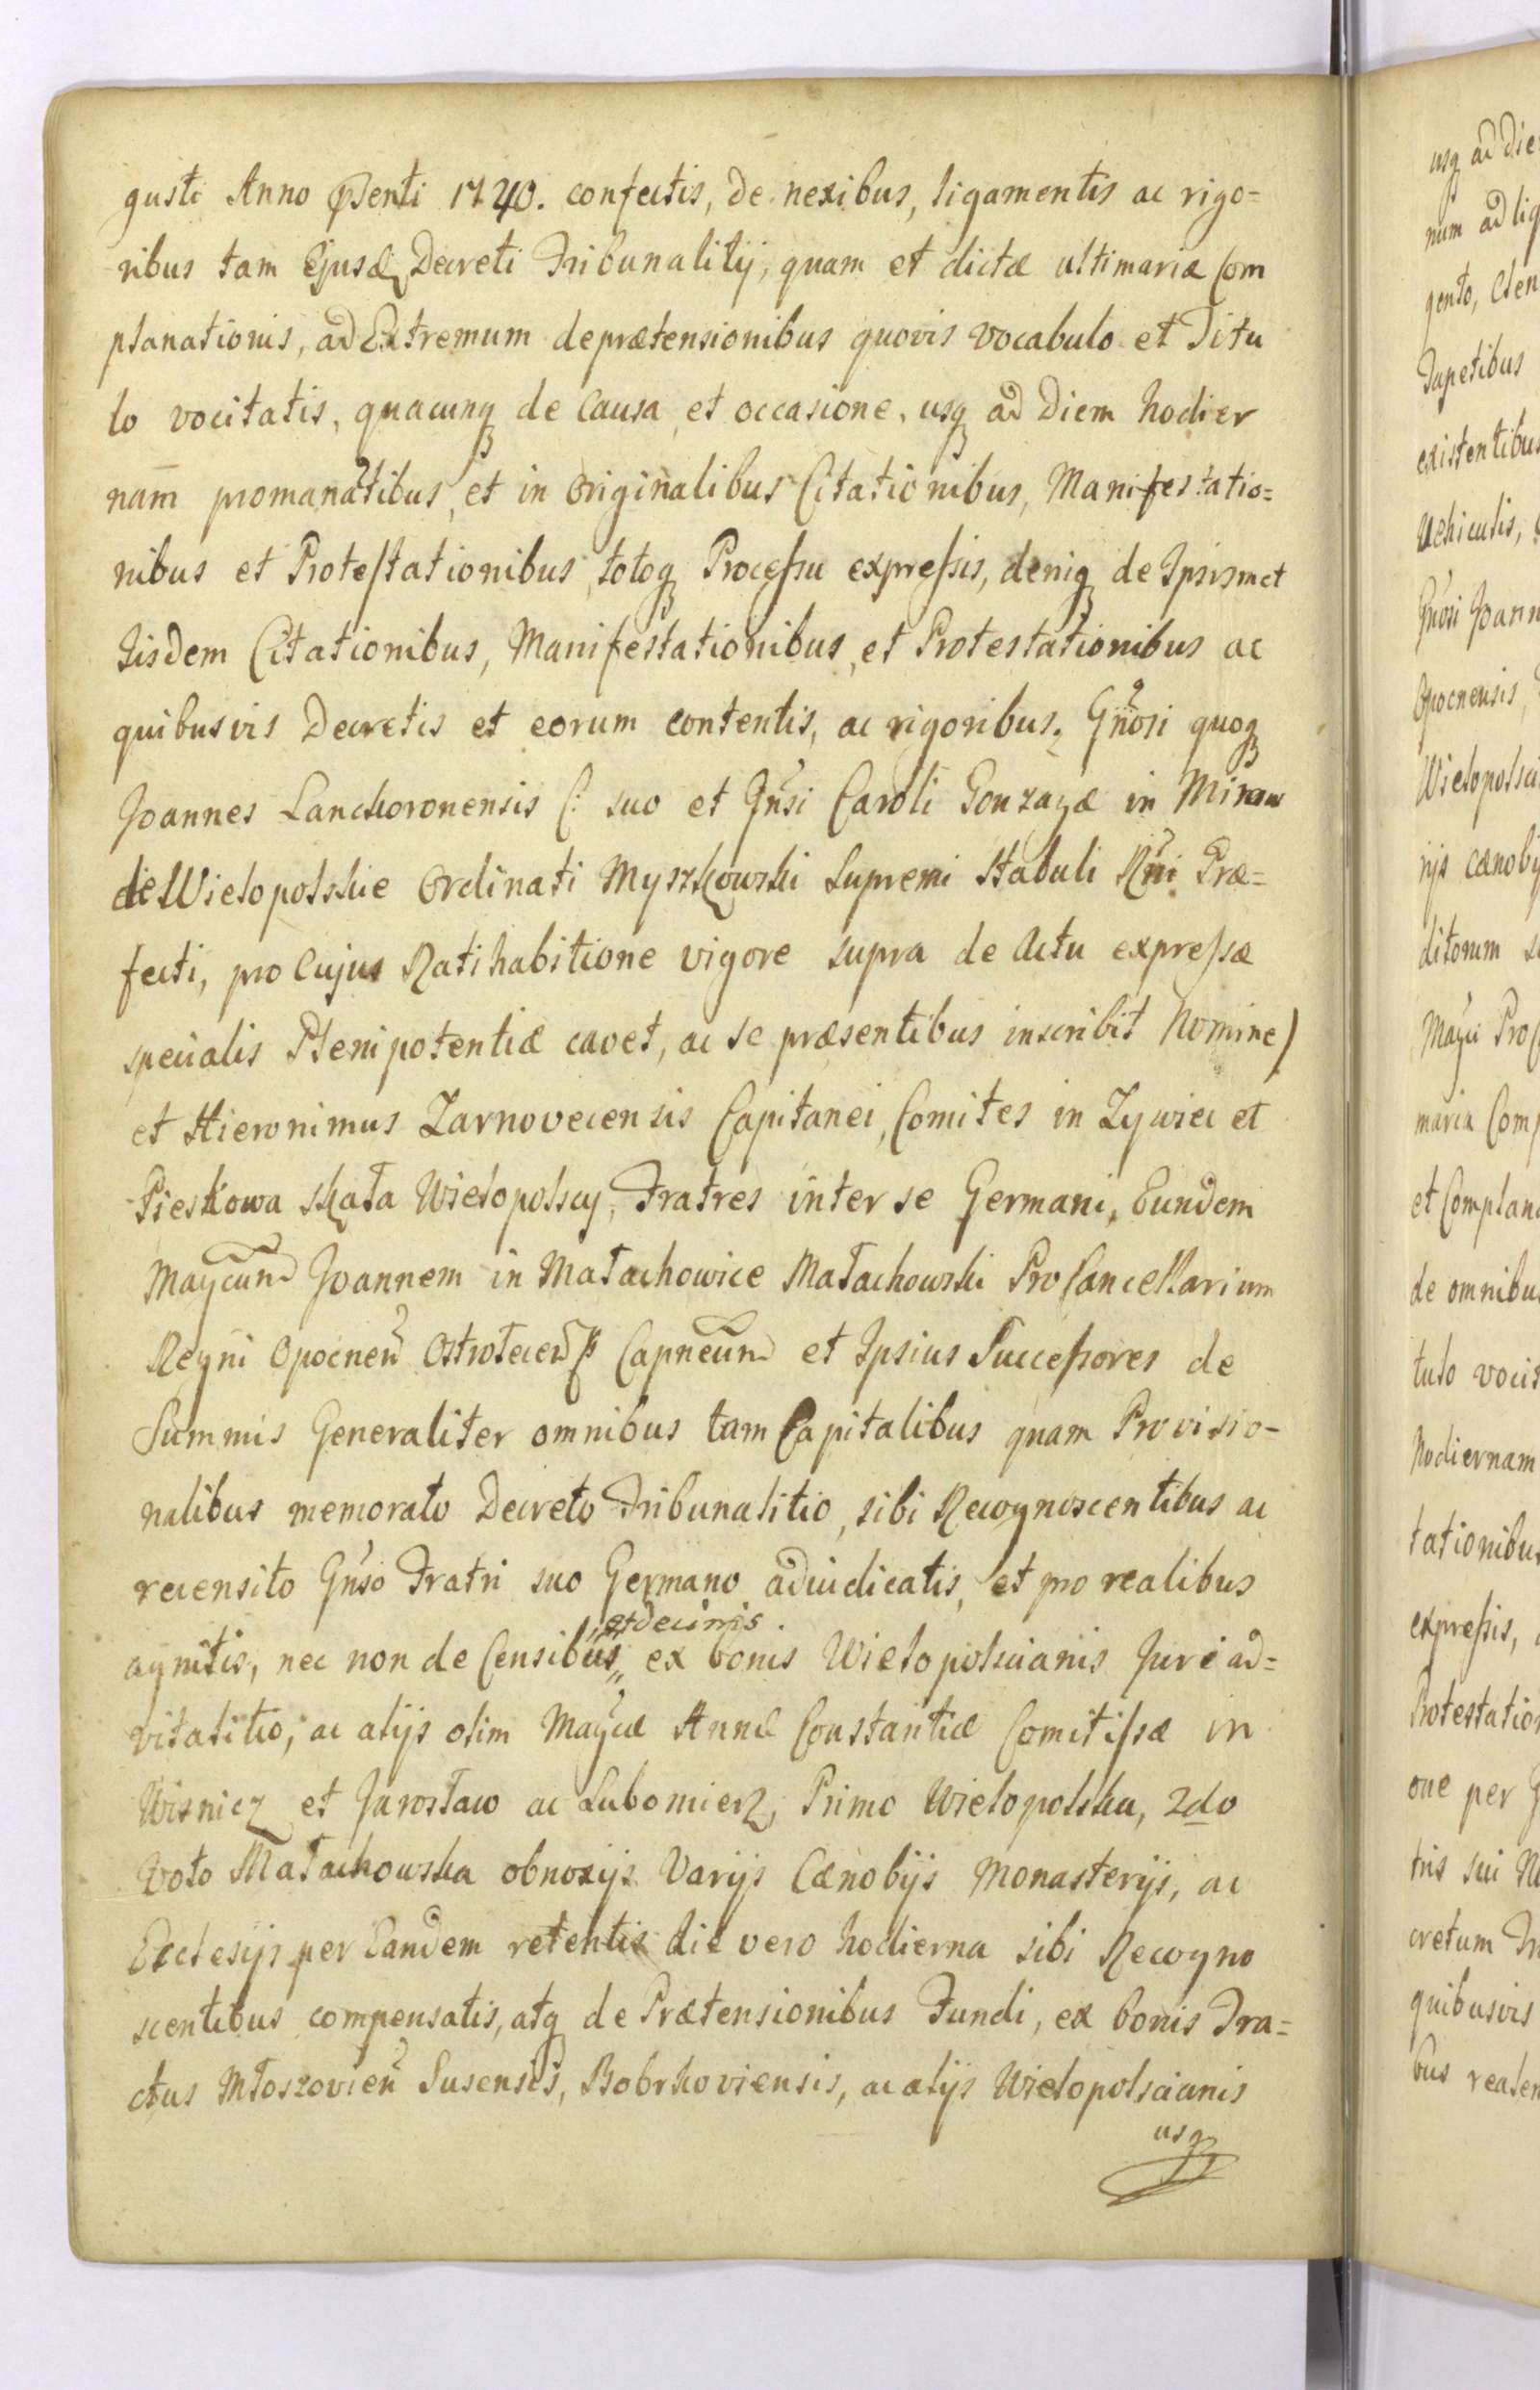 gusti Anno Psenti 1740. confectis, de nexibus, ligamentis ac rigo=
ribus tam Ejusdę Decreti Tribunalitij, quam et dictæ ultimariæ Com
planationis, ad Extremum de prætensionibus quovis vocabulo et Titu
lo vocitatis, quacunq de causa, et occasione, usq ad Diem hodier
nam promanatibus, et in originalibus Citationibus, Manifestatio=
nibus et Protestationibus, totoq Processu expressis, deniq de Ipsismet
Iisdem Citationibus, Manifestationibus, et Protestationibus ac
quibusvis Decretis et eorum contentis, ac rigoribus. Gnosi quoq
Joannes Lanckoronensis (: suo et Gnsi Caroli Gonzagæ in Mirow
die Wielopolskie Ordinati Myszkowski Supremi Stabuli Rni Præ=
fecti, pro Cujus Ratihabitione vigore supra de Actu expressæ
specialis Plenipotentiæ cavet, ac se præsentibus inscribit Nomine)
et Hieronimus Zarnovecensis Capitanei, Comites in Zywiec et
Pieskowa skała Wielopolscy, Fratres inter se Germani, Eundem
Magcum Joannem in Małachowice Małachowski ProCancellarium
Regni Opocnen Ostrołecen Capneum et Ipsius Successores de
Summis Generaliter omnibus tam Capitalibus quam Provisio-
nalibus memorato Decreto Tribunalitio, sibi Recognoscentibus ac
recensito Gnso Fratri suo Germano adiudicatis, et pro realibus
agnitis, nec non de Censibus et decimis ex bonis Wielopolscianis Jure ad=
vitalitio, ac alijs olim Magcæ Annæ Constantiæ Comitissæ in
Wisnicz et Jarosław ac Lubomierz, Primo Wielopolska, 2do
Voto Małachowska obnoxijs Varijs Cænobijs Monasterijs, ac
Ecclesijs per Eandem retentis die vero hodierna sibi Recogno
scentibus compensatis, atq de Prætensionibus Fundi, ex bonis Tra=
ctus Młoszovien Susensis, Bobrkoviensis, ac alijs Wielopolscianis
usq
usq ad die
num ad lig
gento,
Tapetibus
existentibus
Vehiculis,
Gnosi Joann
Opocnensis,
Wielopolsci
nijs cænobij
ditorum
Magci Pro
maria Comp
et Complan
de omnibu
tulo voci
hodiernam
tationibus
expressis,
Protestatio
one per
tris sui
cretum
quibusvis
bus